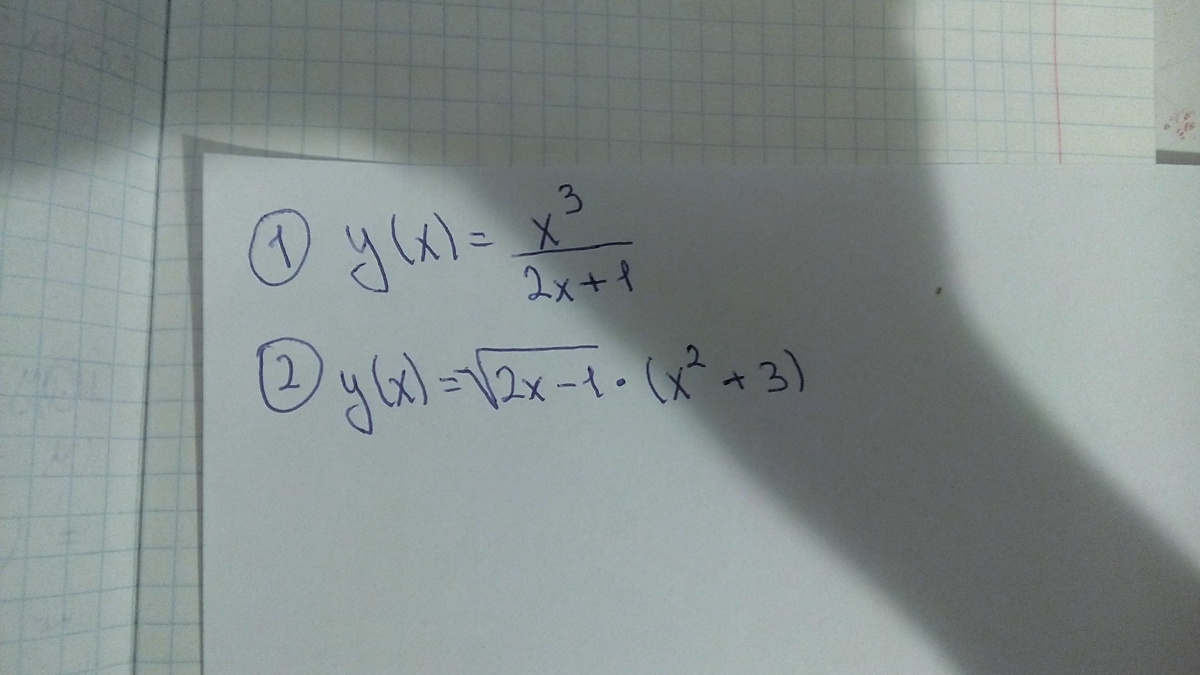 ① y(x) = x³/(2x+1)
② y(x) = √(2x-1) · (x² + 3)